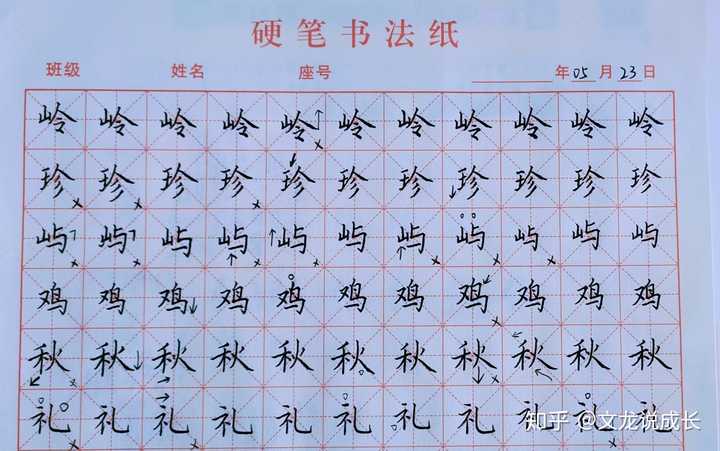 硬笔书法纸
班级 姓名 座号 年05月23日
岭岭岭岭岭岭岭岭岭岭岭
珍珍珍珍珍珍珍珍珍珍珍
屿屿屿屿屿屿屿屿屿屿屿
鸡鸡鸡鸡鸡鸡鸡鸡鸡鸡鸡
秋秋秋秋秋秋秋秋秋秋秋
礼礼礼礼礼礼礼礼礼礼礼
知乎 @文龙说成长